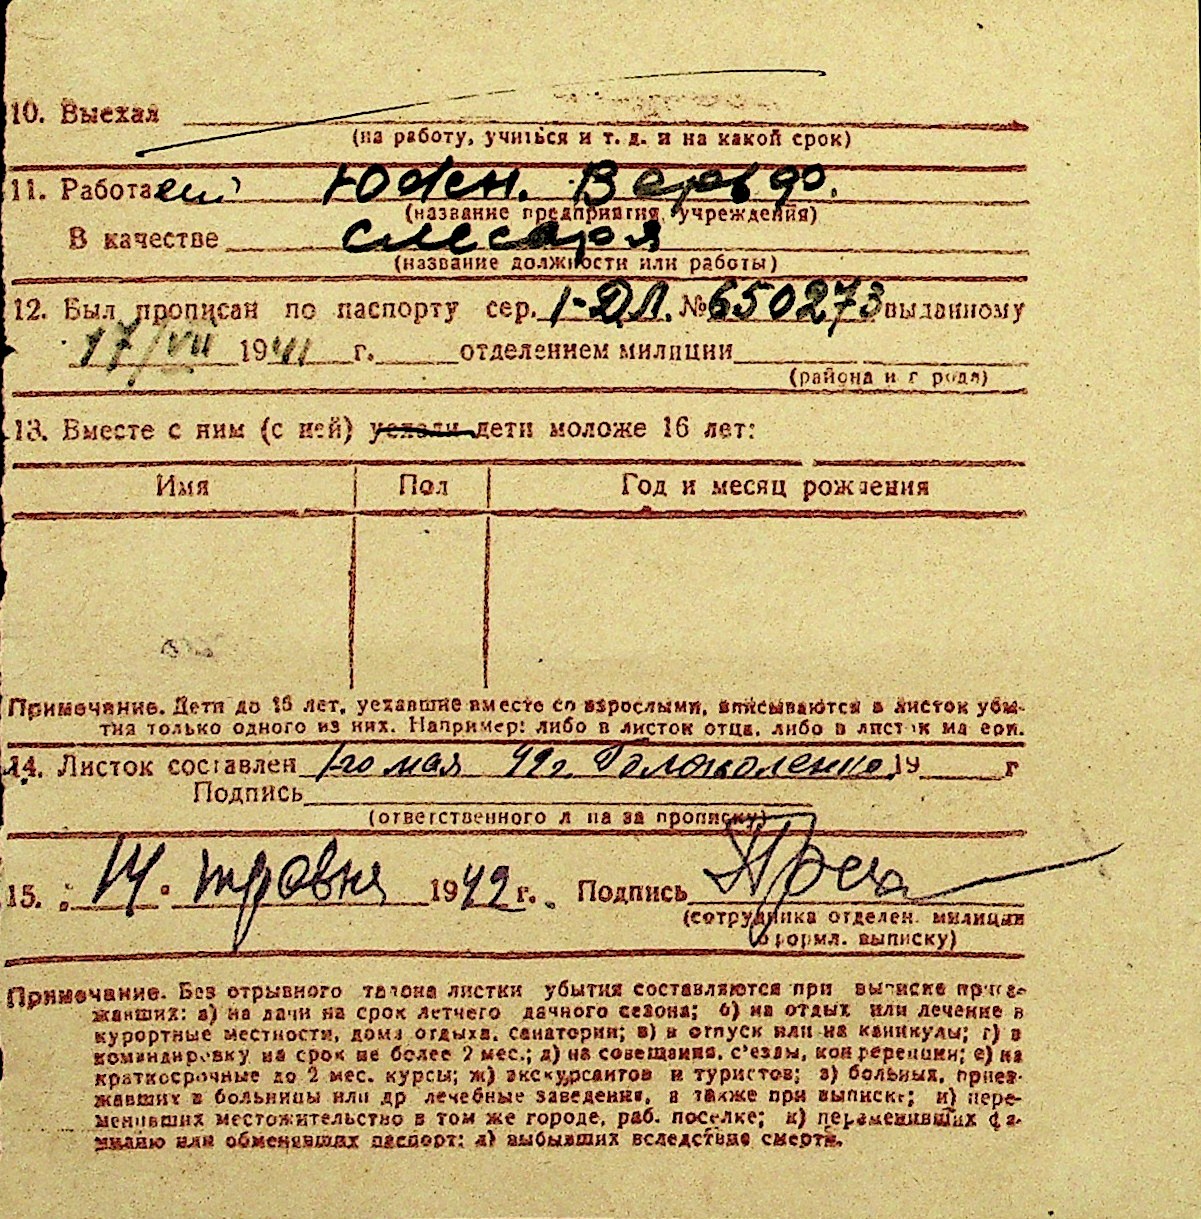 10. Выехал
(на работу, учиться и т. д. и на какой срок)
11. Работа Южен. Верфь
(название предприятия, учреждения)
В качестве слесаря
(название должности или работы)
12. Был прописан по паспорту сер. 1-ДЛ. № 650273 выданному
17/VII 1941 г. отделением милиции
(района и города)
13. Вместе с ним (с ней) уехали дети моложе 16 лет:
Имя Пол Год и месяц рождения
Примечание. Дети до 16 лет, уехавшие вместе со взрослыми, вписываются в листок убы-
тия только одного из них. Например: либо в листок отца, либо в листок матери.
14. Листок составлен 1-го мая 42г. 19 г
Подпись
(ответственного лица за прописку)
15. 14. травня 1942 г. Подпись
(сотрудника отделен. милиции
оформл. выписку)
Примечание. Без отрывного талона листки убытия составляются при выписке приез-
жавших: а) на дачи на срок летнего дачного сезона; б) на отдых или лечение в
курортные местности, дома отдыха, санатории; в) в отпуск или на каникулы; г) в
командировку на срок не более 2 мес.; д) на совещания, с'езды, конференции; е) на
краткосрочные до 2 мес. курсы; ж) экскурсантов и туристов; з) больных, приез-
жавших в больницы или др лечебные заведения, а также при выписке; и) пере-
менивших местожительство в том же городе, раб. поселке; к) переменивших фа-
милию или обменявших паспорт; л) выбывших вследствие смерти.